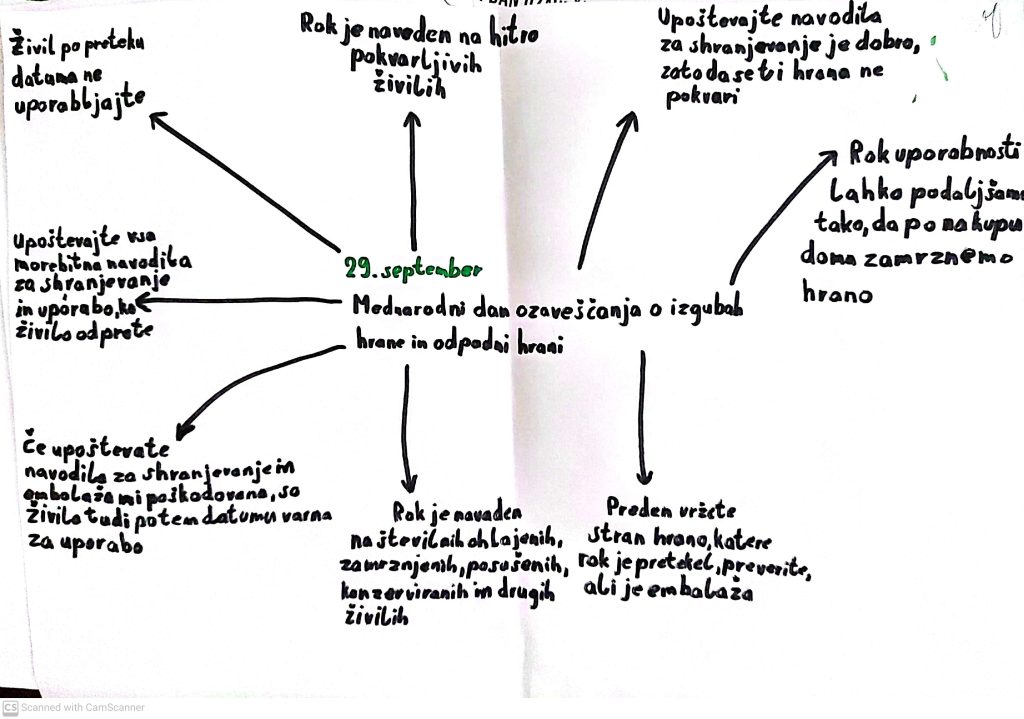 Živil po preteku
datama ne
uporabljajte
Rok je naveden na hitro
pokvarljivih
živilih
Upoštevajte navodila
za shranjevanje je dobro,
zato da se ti hrana ne
pokvari
Rok uporabnosti
Lahko podaljšamo
tako, da po nakupu
doma zamrznemo
hrano
Upoštevajte vsa
morebitna navodila
za shranjevanje
in uporabo, ko
živilo odprete
29. september
Mednarodni dan ozaveščanja o izgubah
hrane in odpadni hrani
Če upoštevate
navodila za shranjevanje in
embalaža ni poškodovana, so
živila tudi potem datumu varna
za uporabo
Rok je navaden
na številnih ohlajenih,
zamrznjenih, posušenih,
konzerviranih in drugih
živilih
Preden vržete
stran hrano, katere
rok je pretekel, preverite,
ali je embalaža
CS Scanned with CamScanner